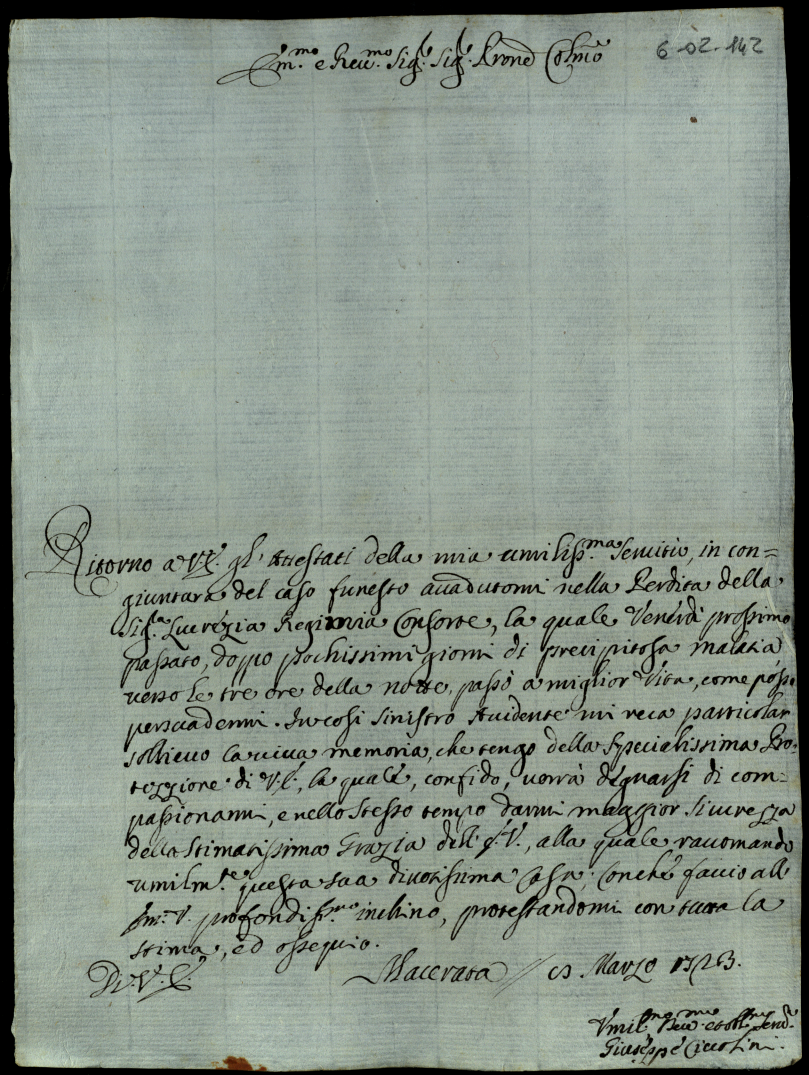 Em.mo e Rev.mo Sig.r Sig.r Prone Colmo
6-02-142
Ritorno a V.E. gl'Attestati della mia umiliss.ma Servitù, in con=
giuntura del caso funesto accadutomi nella Perdita della
Sig.ra Lucrezia Consorte, la quale Venerdì prossimo
passato, doppo pochissimi giorni di precipitosa malatia
verso le tre ore della notte, passò a miglior Vita, come posso
persuadermi. In così sinistro Accidente mi reca particolar
sollievo la viva memoria, che tengo della specialissima Pro-
tezzione di V.E., la quale, confido, vorrà degnarsi di com-
passionarmi, e nello stesso tempo darmi maggior sicurezza
della Stimatissima Grazia dell'E.V., alla quale raccomando
umilm.te questa sua divotissima Casa; Con che faccio all'
Em.V. profondiss.mo inchino, protestandomi con tutta la
stima, ed ossequio.
Di V.E.
Macerata // Marzo 1723.
Umil.mo Dev.mo et obl.mo Serv.r
Giuseppe Ciccolini.